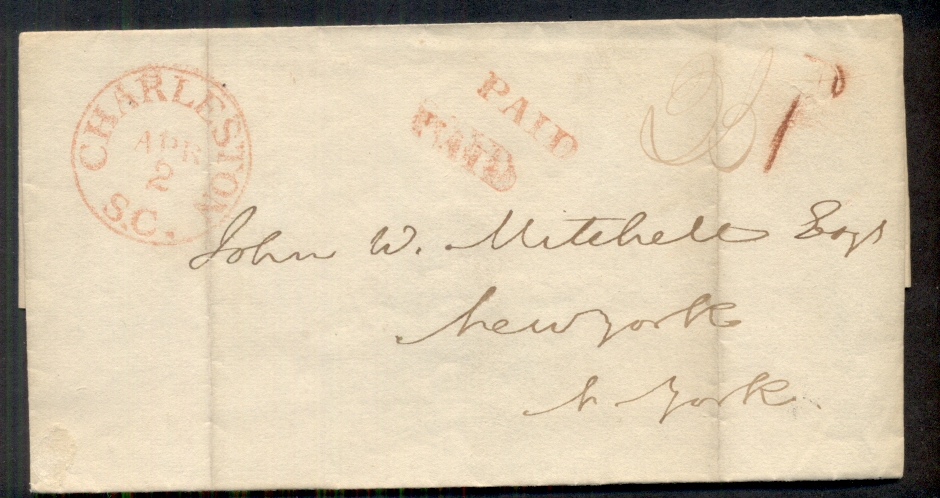 CHARLESTON
APR
2
S.C.
PAID
PAID
John W. Mitchell Esqr
New York
N. York